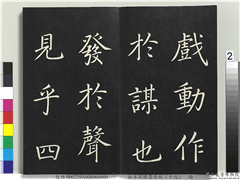 戲動作
於謀也
發於聲
見乎四
2